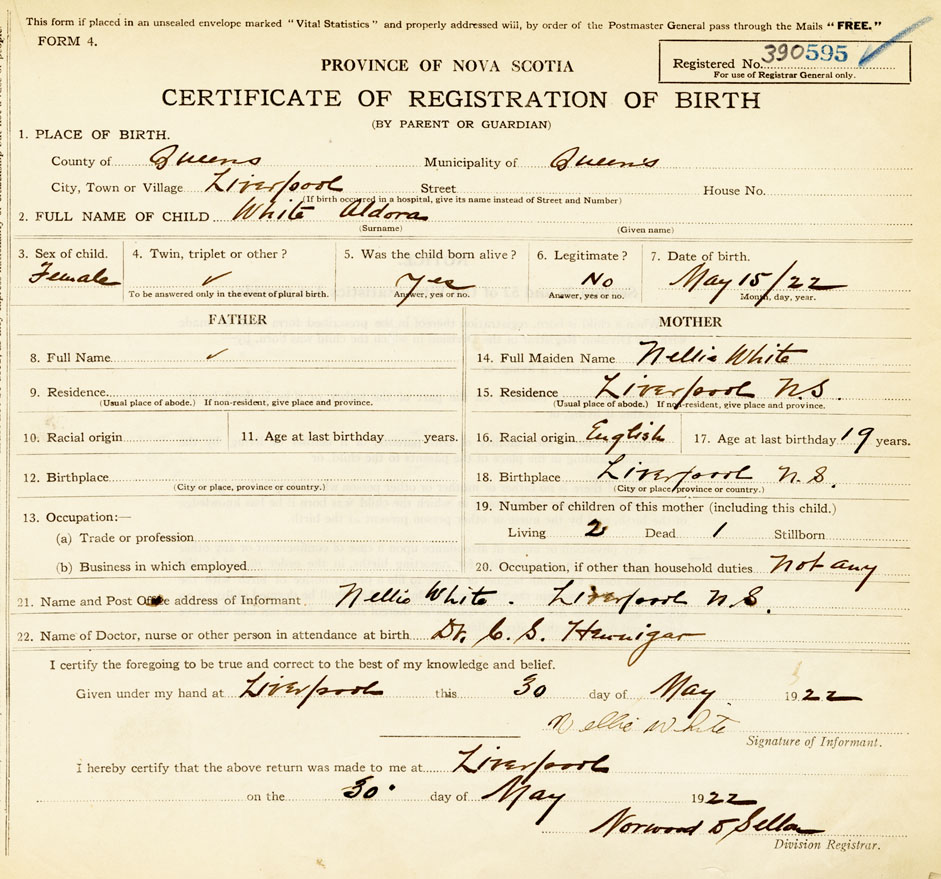 This form if placed in an unsealed envelope marked "Vital Statistics" and properly addressed will, by order of the Postmaster General pass through the Mails "FREE."
FORM 4.
Registered No. 390595
For use of Registrar General only.
PROVINCE OF NOVA SCOTIA
CERTIFICATE OF REGISTRATION OF BIRTH
(BY PARENT OR GUARDIAN)
1. PLACE OF BIRTH.
County of Queens Municipality of Queens
City, Town or Village Liverpool Street House No.
(If birth occurred in a hospital, give its name instead of Street and Number)
2. FULL NAME OF CHILD White Aldora
(Surname) (Given name)
3. Sex of child. 4. Twin, triplet or other? 5. Was the child born alive? 6. Legitimate? 7. Date of birth.
Female ✓ Yes No May 15/22
To be answered only in the event of plural birth. Answer, yes or no. Answer, yes or no. Month, day, year.
FATHER
8. Full Name ✓
9. Residence
(Usual place of abode.) If non-resident, give place and province.
10. Racial origin 11. Age at last birthday years.
12. Birthplace
(City or place, province or country.)
13. Occupation:—
(a) Trade or profession
(b) Business in which employed
MOTHER
14. Full Maiden Name Nellie White
15. Residence Liverpool N.S.
(Usual place of abode.) If non-resident, give place and province.
16. Racial origin English 17. Age at last birthday 19 years.
18. Birthplace Liverpool N.S.
(City or place, province or country.)
19. Number of children of this mother (including this child.)
Living 2 Dead 1 Stillborn
20. Occupation, if other than household duties Not any
21. Name and Post Office address of Informant Nellie White. Liverpool N.S.
22. Name of Doctor, nurse or other person in attendance at birth Dr. C. S. Hennigar
I certify the foregoing to be true and correct to the best of my knowledge and belief.
Given under my hand at Liverpool this 30 day of May 1922
Nellie White
Signature of Informant.
I hereby certify that the above return was made to me at Liverpool
on the 30 day of May 1922
Norwood
Division Registrar.